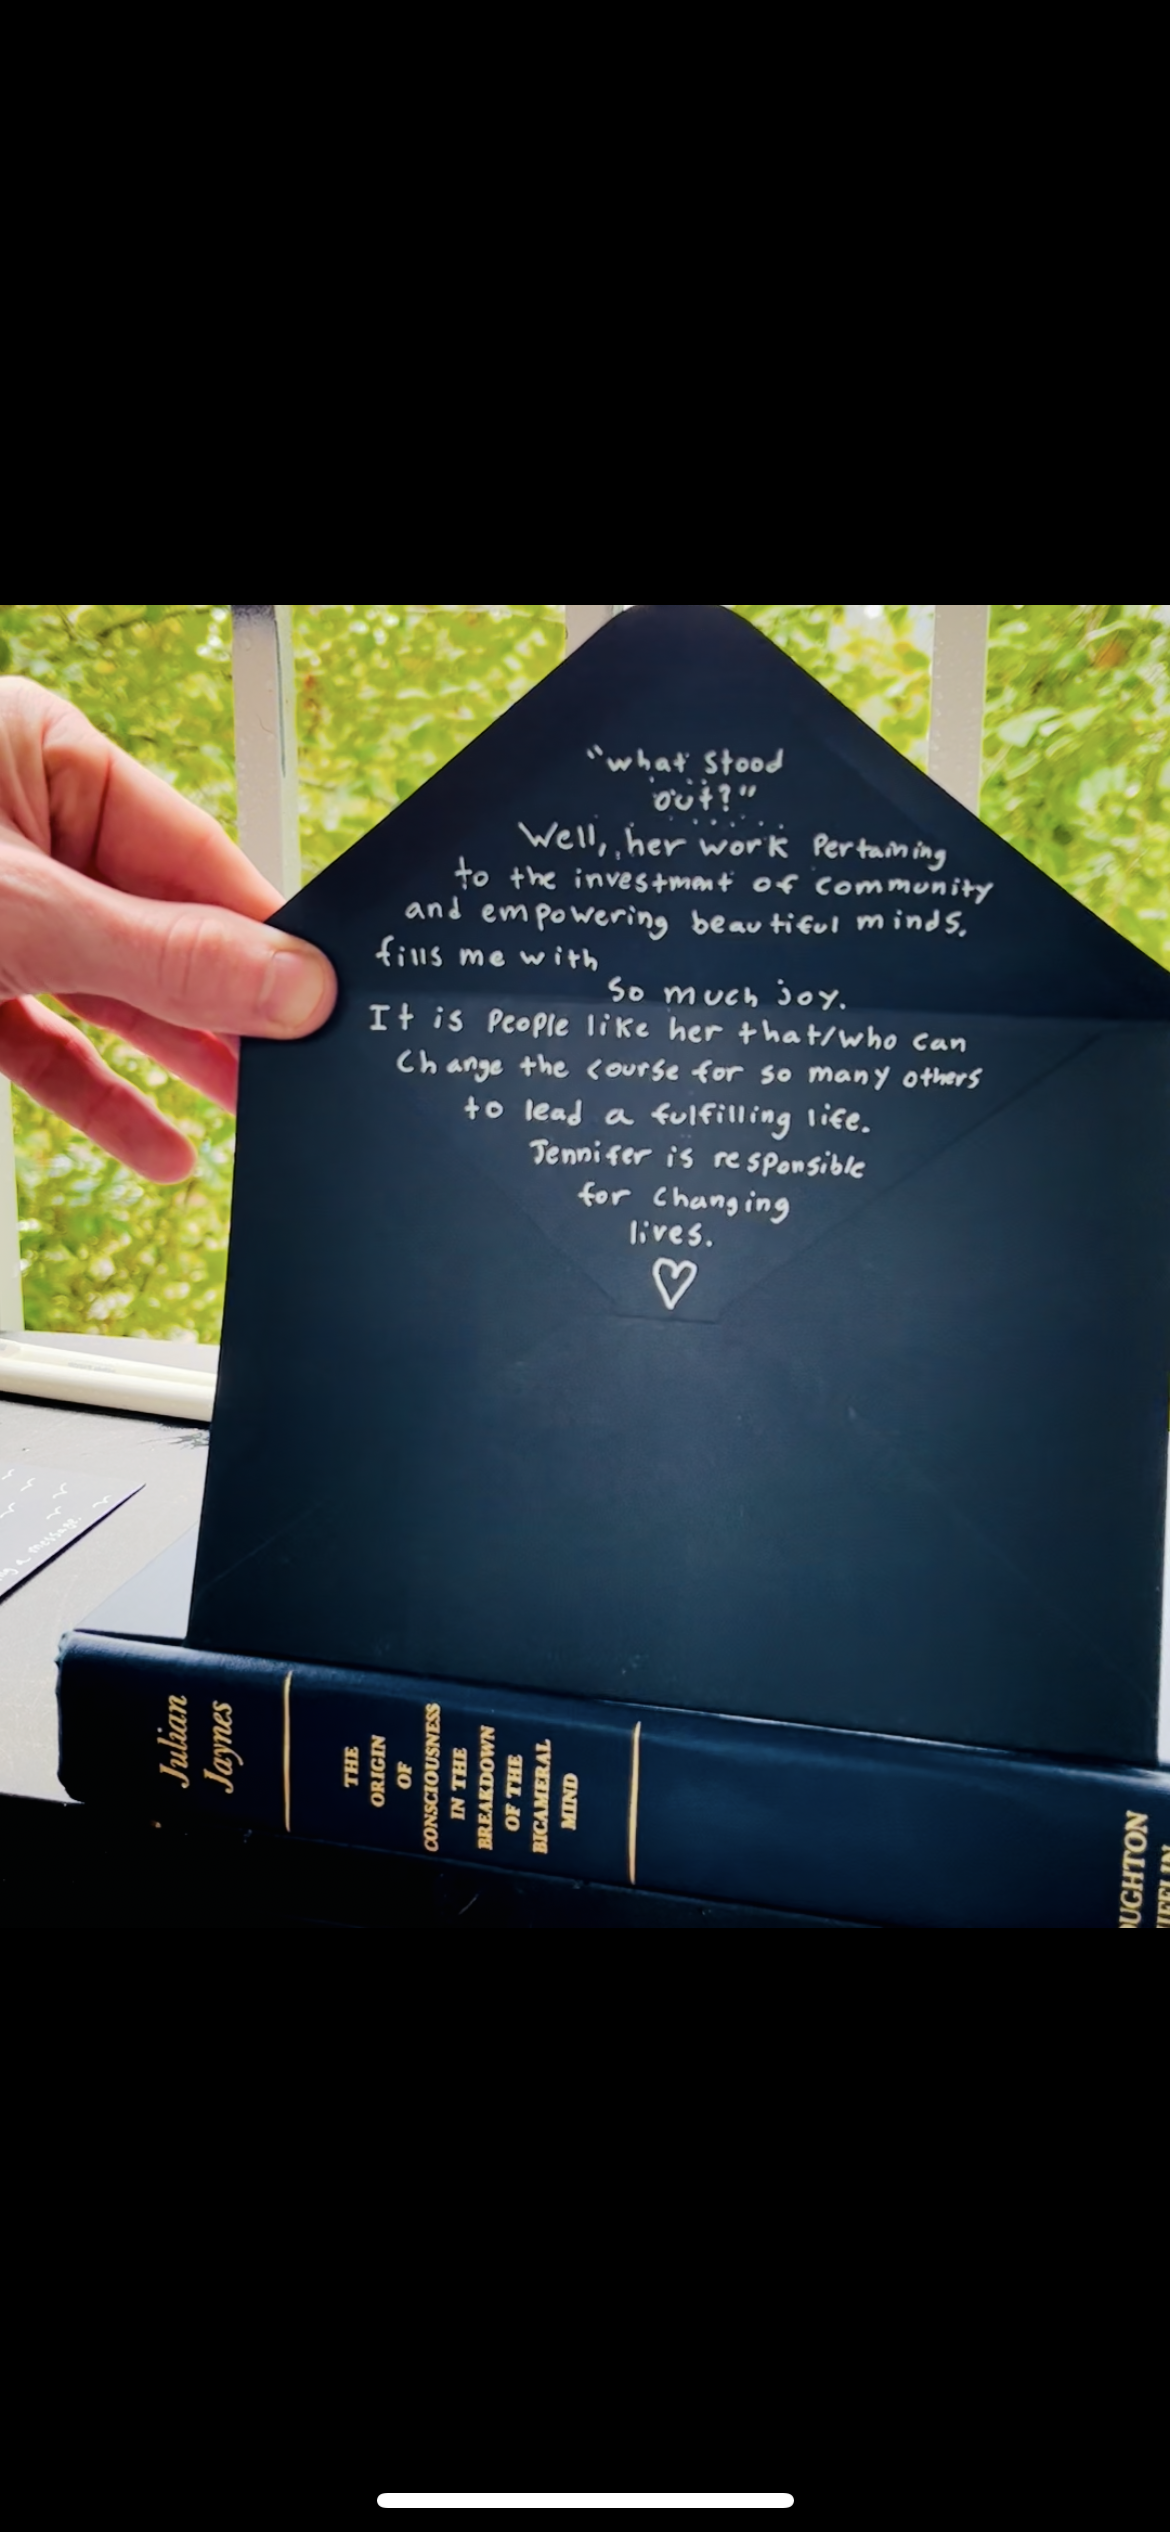 "what stood
out?"
Well, her work Pertaining
to the investment of community
and empowering beautiful minds,
fills me with
so much joy.
It is People like her that/who can
Change the course for so many others
to lead a fulfilling life.
Jennifer is responsible
for changing
lives.
a message.
Julian
Jaynes
THE
ORIGIN
OF
CONSCIOUSNESS
IN THE
BREAKDOWN
OF THE
BICAMERAL
MIND
OUGHTON
IFFLIN